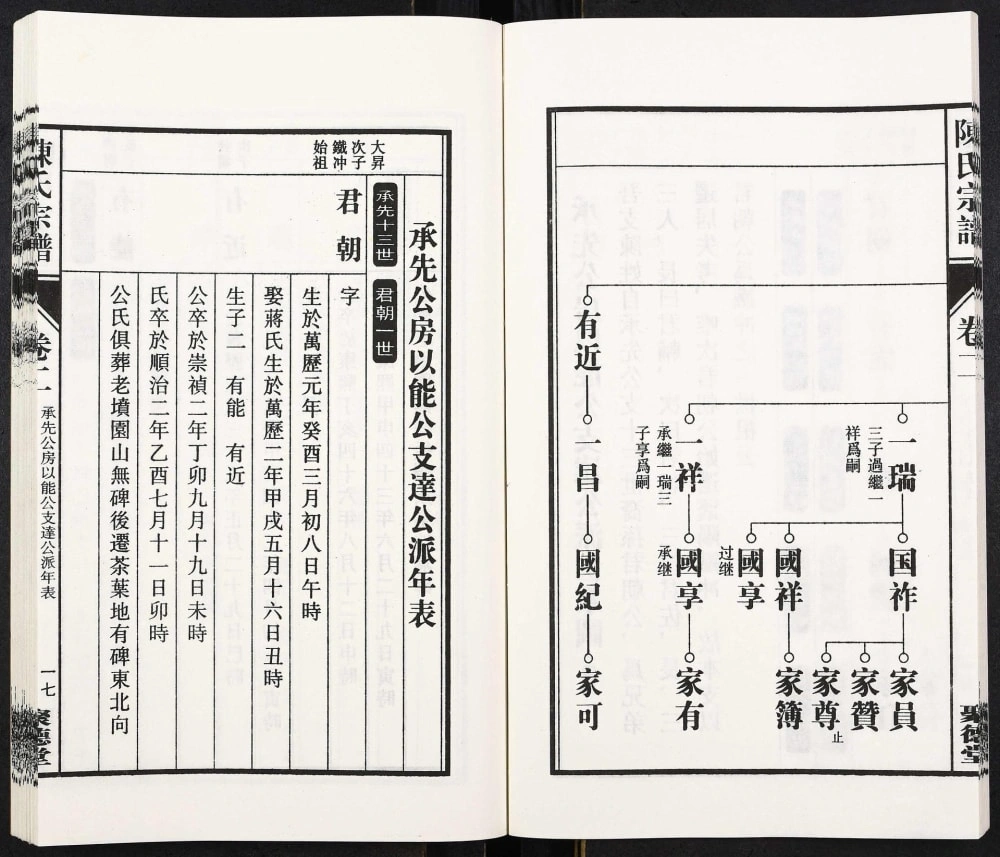 陳氏宗譜
卷二
聚德堂
一瑞
三子過繼一
祥爲嗣
国祚
家員
家贊
家尊
止
國祥
家簿
國享
过继
一祥
承繼一瑞三
子享爲嗣
國享
承继
家有
有近
一昌
國紀
家可
承先公房以能公支達公派年表
大昇
次子
鐵冲
始祖
承先十三世
君朝一世
君朝
字
生於萬歷元年癸酉三月初八日午時
娶蔣氏生於萬歷二年甲戌五月十六日丑時
生子二 有能 有近
公卒於崇禎二年丁卯九月十九日未時
氏卒於順治二年乙酉七月十一日卯時
公氏俱葬老墳園山無碑後遷茶葉地有碑東北向
陳氏宗譜
卷二
承先公房以能公支達公派年表
一七
聚德堂